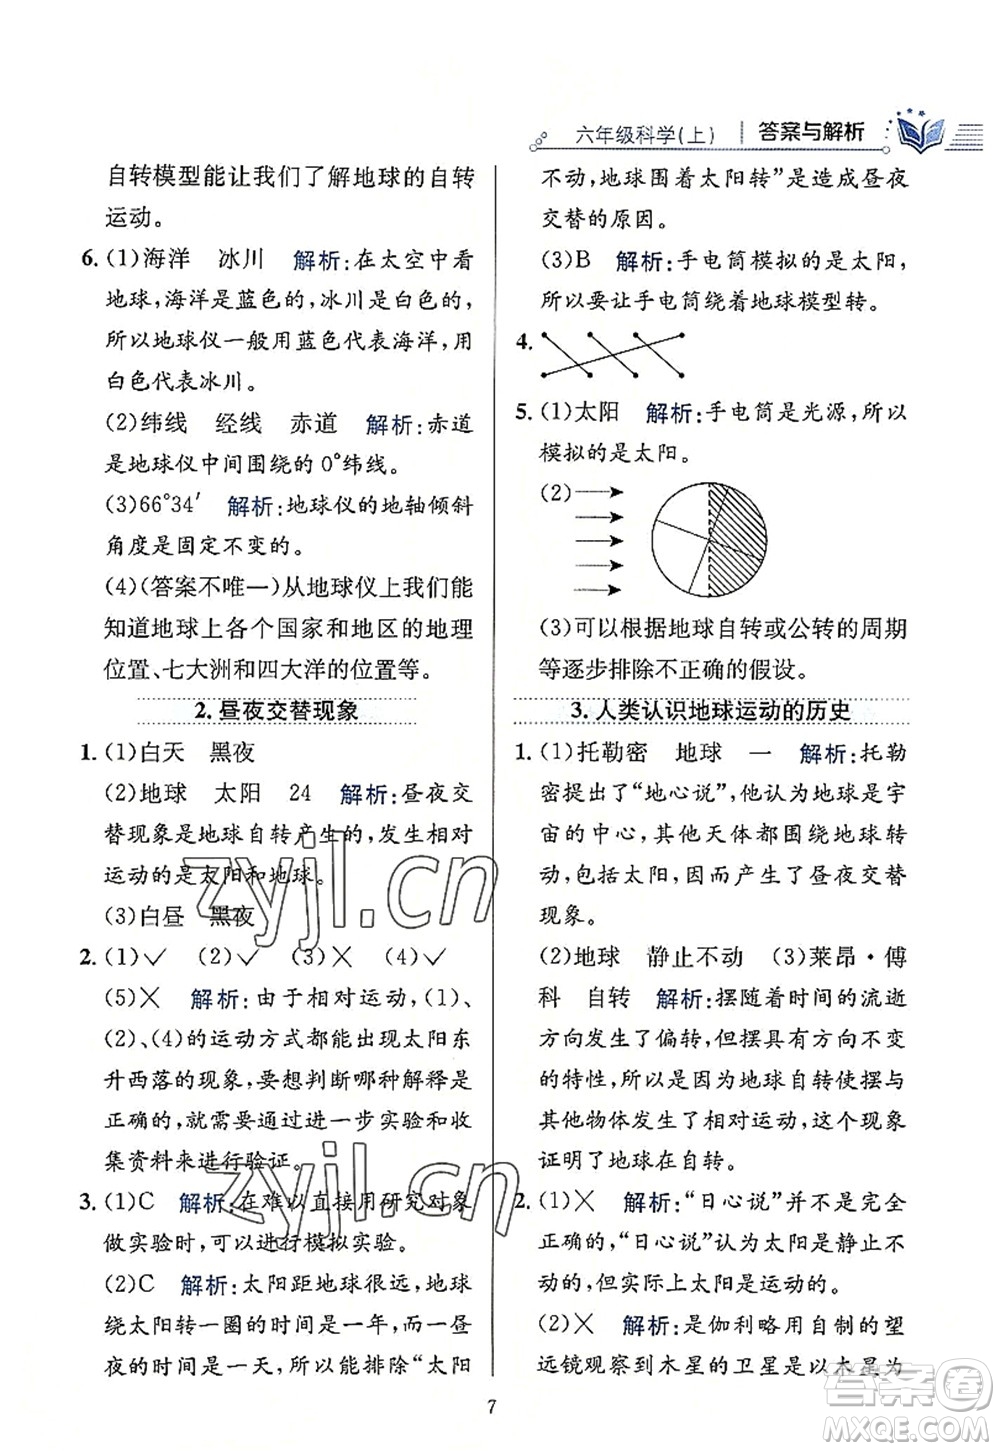 六年级科学(上) 答案与解析
自转模型能让我们了解地球的自转
运动。
6. (1)海洋 冰川 解析:在太空中看
地球,海洋是蓝色的,冰川是白色的,
所以地球仪一般用蓝色代表海洋,用
白色代表冰川。
(2)纬线 经线 赤道 解析:赤道
是地球仪中间围绕的0°纬线。
(3)66°34′ 解析:地球仪的地轴倾斜
角度是固定不变的。
(4)(答案不唯一)从地球仪上我们能
知道地球上各个国家和地区的地理
位置、七大洲和四大洋的位置等。
2. 昼夜交替现象
1. (1)白天 黑夜
(2)地球 太阳 24 解析:昼夜交
替现象是地球自转产生的,发生相对
运动的是太阳和地球。
(3)白昼 黑夜
2. (1)✓ (2)✓ (3)✕ (4)✓
(5)✕ 解析:由于相对运动,(1)、
(2)、(4)的运动方式都能出现太阳东
升西落的现象,要想判断哪种解释是
正确的,就需要进一步实验和收
集资料来进行验证。
3. (1)C 解析:在难以直接用研究对象
做实验时,可以进行模拟实验。
(2)C 解析:太阳距地球很远,地球
绕太阳转一圈的时间是一年,而一昼
夜的时间是一天,所以能排除“太阳
不动,地球围着太阳转”是造成昼夜
交替的原因。
(3)B 解析:手电筒模拟的是太阳,
所以要让手电筒绕着地球模型转。
4.
5. (1)太阳 解析:手电筒是光源,所以
模拟的是太阳。
(2)
(3)可以根据地球自转或公转的周期
等逐步排除不正确的假设。
3. 人类认识地球运动的历史
1. (1)托勒密 地球 一 解析:托勒
密提出了“地心说”,认为地球是宇
宙的中心,其他天体都围绕地球转
动,包括太阳,因而产生了昼夜交替
现象。
(2)地球 静止不动 (3)莱昂·傅
科 自转 解析:摆随着时间的流逝
方向发生了偏转,而摆具有保持方向
的特性,所以是因为地球自转使摆与
其他物体发生了相对运动,这个现象
证明了地球在自转。
2. (1)✕ 解析:“日心说”并不是完全
正确的,“日心说”认为太阳是静止不
动的,但实际上太阳是运动的。
(2)✕ 解析:是伽利略用自制的望
远镜观察到木星的卫星是以木星为
7
zyjl.cn
zyjl.cn
答案圈
MXQE.COM